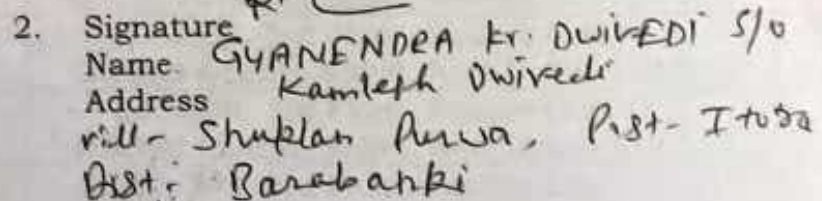 2. Signature
Name GYANENDRA Kr. DWIVEDI S/o
Address Kamlesh Dwivedi
vill- Shuklan Purwa, Post- Ituja
Dist: Barabanki